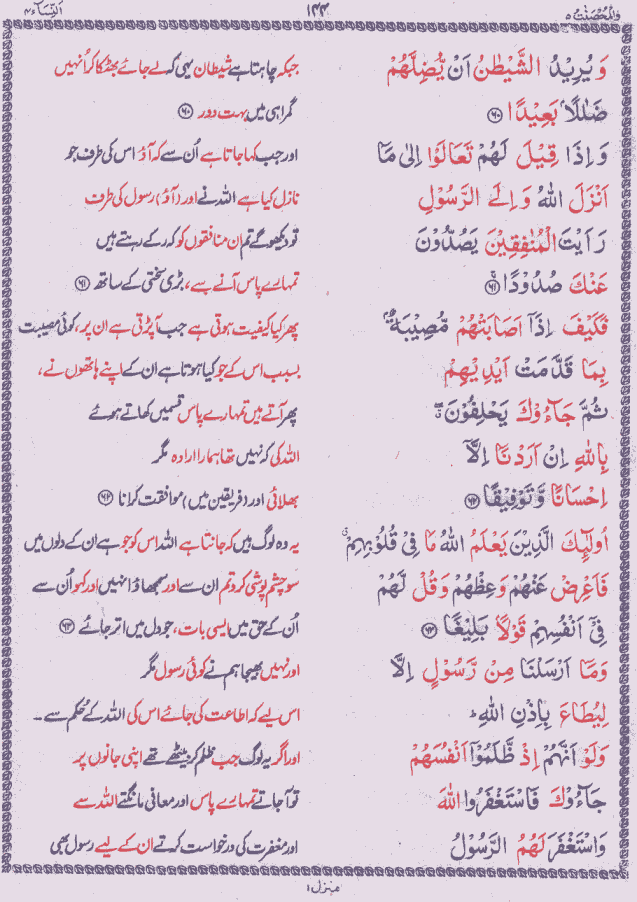 وَالْمُحْصَنٰتُ ٥ ١٣٣ اَلنِّسَآءِ ٤
وَيُرِيْدُ الشَّيْطٰنُ اَنْ يُّضِلَّهُمْ جبکہ چاہتا ہے شیطان یہی کہ لے جائے بھٹکا کر اُنہیں
ضَلٰلًاۢ بَعِيْدًا ﴿٦٠﴾ گمراہی میں بہت دور ﴿٦٠﴾
وَاِذَا قِيْلَ لَهُمْ تَعَالَوْا اِلٰى مَآ اور جب کہا جاتا ہے اُن سے کہ آؤ اس کی طرف جو
اَنْزَلَ اللّٰهُ وَاِلَى الرَّسُوْلِ نازل کیا ہے اللہ نے اور (آؤ) رسول کی طرف
رَاَيْتَ الْمُنٰفِقِيْنَ يَصُدُّوْنَ تو دیکھو گے تم ان منافقوں کو کہ رکے رہتے ہیں
عَنْكَ صُدُوْدًا ﴿٦١﴾ تمہارے پاس آنے سے، بڑی سختی کے ساتھ ﴿٦١﴾
فَكَيْفَ اِذَآ اَصَابَتْهُمْ مُّصِيْبَةٌۢ پھر کیا کیفیت ہوتی ہے جب آپڑتی ہے ان پر، کوئی مصیبت
بِمَا قَدَّمَتْ اَيْدِيْهِمْ بسبب اس کے جو کیا ہوتا ہے ان کے اپنے ہاتھوں نے،
ثُمَّ جَآءُوْكَ يَحْلِفُوْنَ ۖ پھر آتے ہیں تمہارے پاس قسمیں کھاتے ہوئے
بِاللّٰهِ اِنْ اَرَدْنَآ اِلَّآ اللہ کی کہ نہیں تھا ہمارا ارادہ مگر
اِحْسَانًا وَّتَوْفِيْقًا ﴿٦٢﴾ بھلائی اور (فریقین میں) موافقت کرانا ﴿٦٢﴾
اُولٰٓئِكَ الَّذِيْنَ يَعْلَمُ اللّٰهُ مَا فِيْ قُلُوْبِهِمْ ۤ یہ وہ لوگ ہیں کہ جانتا ہے اللہ اس کو جو ہے ان کے دلوں میں
فَاَعْرِضْ عَنْهُمْ وَعِظْهُمْ وَقُلْ لَّهُمْ سو چشم پوشی کرو تم ان سے اور سمجھاؤ انہیں اور کہو اُن سے
فِيْٓ اَنْفُسِهِمْ قَوْلًاۢ بَلِيْغًا ﴿٦٣﴾ اُن کے حق میں ایسی بات، جو دل میں اتر جائے ﴿٦٣﴾
وَمَآ اَرْسَلْنَا مِنْ رَّسُوْلٍ اِلَّا اور نہیں بھیجا ہم نے کوئی رسول مگر
لِيُطَاعَ بِاِذْنِ اللّٰهِ ؕ اس لیے کہ اطاعت کی جائے اس کی اللہ کے حُکم سے ۔
وَلَوْ اَنَّهُمْ اِذْ ظَّلَمُوْٓا اَنْفُسَهُمْ اور اگر یہ لوگ جب ظلم کر بیٹھے تھے اپنی جانوں پر
جَآءُوْكَ فَاسْتَغْفَرُوا اللّٰهَ تو آجاتے تمہارے پاس اور معافی مانگتے اللہ سے
وَاسْتَغْفَرَ لَهُمُ الرَّسُوْلُ اور مغفرت کی درخواست کرتے ان کے لیے رسول بھی
منزل ١